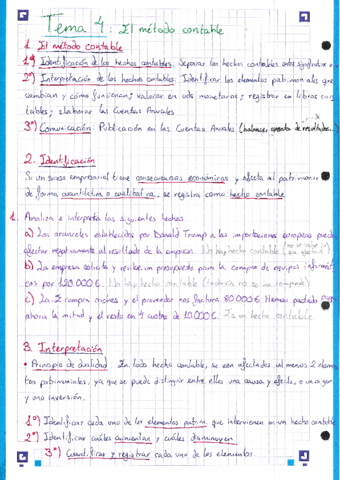 Tema 4: El método contable
1. El método contable
1º) Identificación de los hechos contables: Separar los hechos contables
2º) Interpretación de los hechos contables: Identificar los elementos patrimoniales que
cambian y cómo funcionan; valorar en uds monetarias; registrar en libros con-
tables; elaborar las Cuentas Anuales
3º) Comunicación: Publicación en las Cuentas Anuales (balances, cuenta de resultados...)
2. Identificación
Si un suceso empresarial tiene consecuencias económicas y afecta al patrimonio
de forma cuantitativa o cualitativa, se registra como hecho contable
1. Analiza e interpreta los siguientes hechos
a) Los aranceles establecidos por Donald Trump a las importaciones europeas pueden
afectar negativamente al resultado de la empresa. No hay hecho contable
b) La empresa solicita y recibe un presupuesto para la compra de equipos informáti-
cos por 120.000 €. No hay hecho contable (todavía no se ha comprado)
c) La E compra coches y el proveedor nos factura 80.000 €. Hemos pagado
ahora la mitad y el resto en 4 cuotas de 10.000 €. Es un hecho contable
3. Interpretación
• Principio de dualidad En todo hecho contable, se ven afectados al menos 2 elemen-
tos patrimoniales, ya que se puede distinguir entre ellos una causa y efecto, o un origen
y una inversión.
1º) Identificar cada uno de los elementos patrim. que intervienen en un hecho contable
2º) Identificar cuáles aumentan y cuáles disminuyen
3º) Cuantificar y registrar cada uno de los elementos